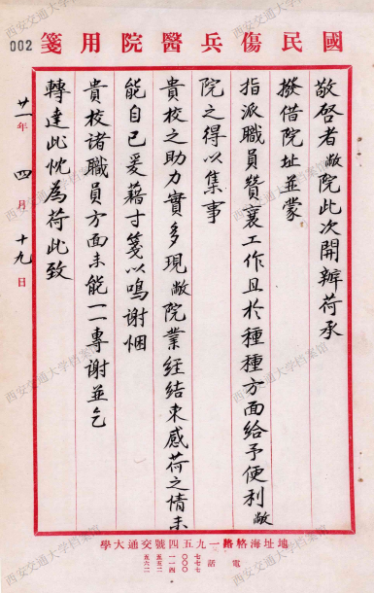 國民傷兵醫院用箋
002
敬啓者敝院此次開辦荷承
撥借院址並蒙
指派職員贊襄工作且於種種方面給予便利敝
院之得以集事
貴校之助力實多現敝院業經結束感荷之情未
能自已爰藉寸箋以鳴謝悃
貴校諸職員方面未能一一專謝並乞
轉達此忱為荷此致
廿一年四月十九日
地址海格路一九五四號交通大學
電話
西安交通大学档案馆